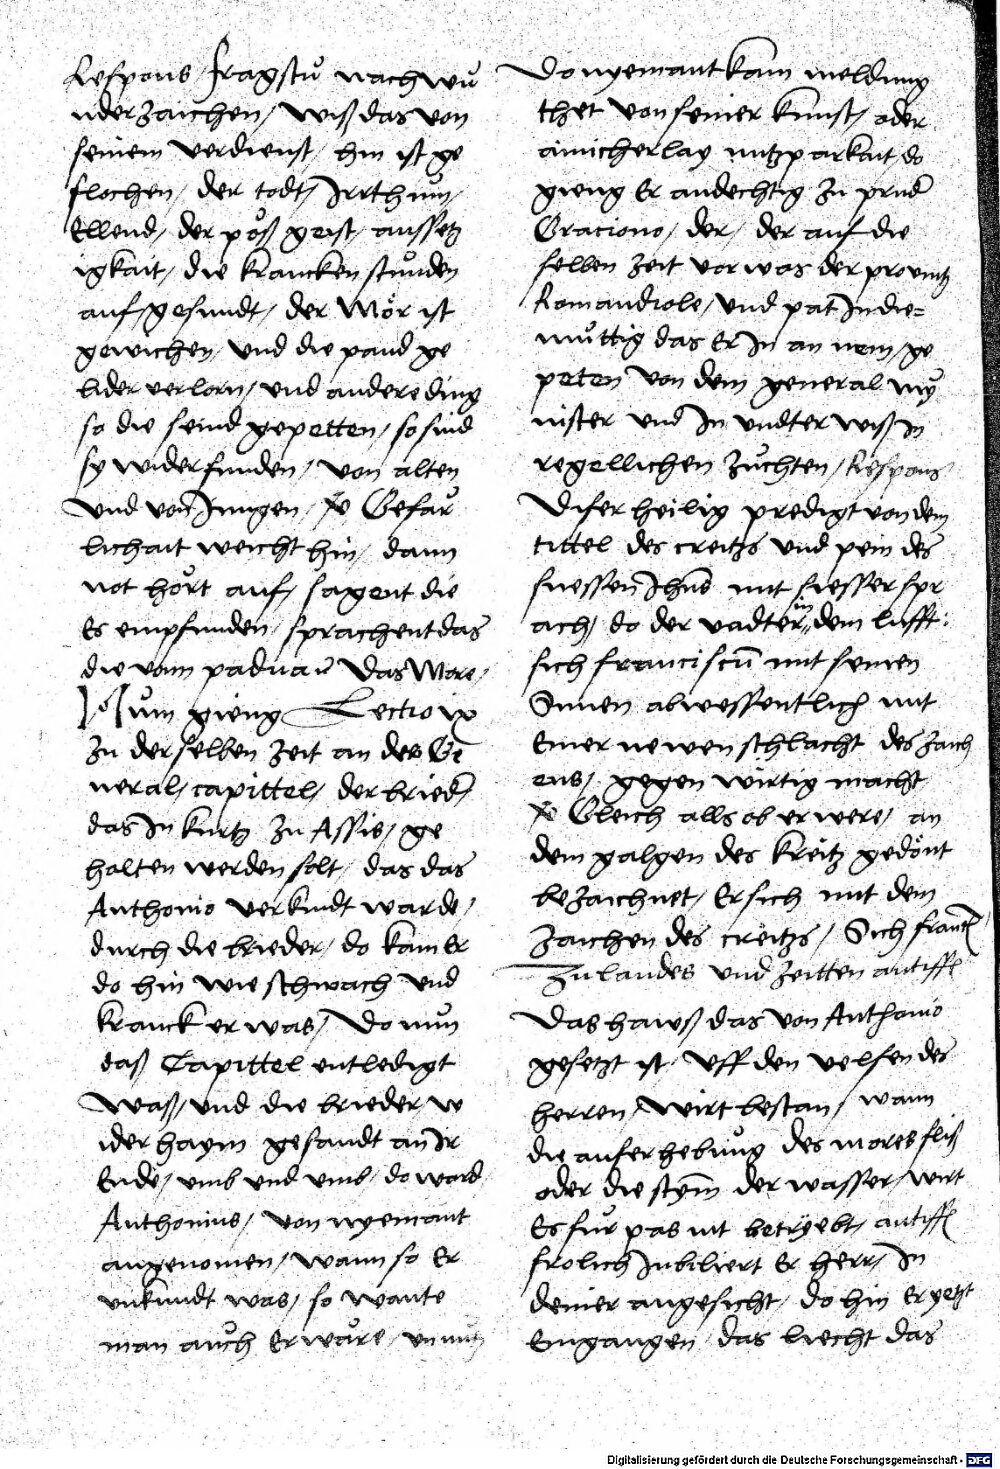 Respons / fragstu nach wu
nderzaichen / wiß das von
seinem verdienst / hin ist ge
flochen / der todt / Irrthum /
Ellend / der pöß geist / aussetz
igkait / die krancken stunden
auf / gesundt / der Mör ist
gewichen / vnd die pand ge
lider verlorn / vnd andere ding
so die seind gepetten / so sind
sy widerfunden / von alten
vnd von Jungen / Gefär
lichait weicht hin / dann
not hört auf / sagent die
Es empfunden / sprachent das
die vonn paduau Das More /
Num gieng Lectio ix
zu derselben zeit an des Ge
neral / capittel / der brieder
das In kurtz zu Assis / ge
halten werden solt / das das
Anthonio verkindt warde /
durch die brieder / do kam Er
do hin wie schwach vnd
kranck er was / Do nun
daß Capittel entledigt
waß / vnd die brieder w
ider haym gesandt an Ir
Ende / vmb vnd vmb / do ward
Anthonius / von nyemant
angenomen / wann so Er
vnkundt was / so wante
man auch Er wäre / vnnutz
Do nyemant kam meldung
thet von seiner kunst / oder
ainicherlay nutzparkait / do
gieng Er andechtig zu prud
Graciono / der / der auf die
selben zeit vor was der prouintz
Romandiole / vnd pat In die=
muttig das Er In an nem / ge
peten von dem general my
nister vnd In vndterwiß in
regellichen zuchten / Respons
Diser heilig predigt von dem
tittel des creitzs vnd pein des
suessen Jhus mit suesser spr
ach / do der vadter in dem lufft :
sich franciscu mit seinen
Sinnen abwessentlich mit
Einer newen schlacht des zaich
ens / gegenwirtig macht
Gleich alls ob er were / an
dem galgen des kreitz gedönt
bezaichnet / Er sich mit dem
zaichen des creitzs / Sich franc
zu landes vnd zeitten antiff
Das hawß das von Anthonio
gesetzt ist vff den velsen des
herren / wirt bestan / wann
die auferhebung des mores fliß
oder die stym der wasser / wirt
Es fur pas nit betryebt / antiff
frolich Jubiliert Er herr / In
deiner angesicht / do hin Er yetzt
Eingangen das liecht das
Digitalisierung gefördert durch die Deutsche Forschungsgemeinschaft - DFG